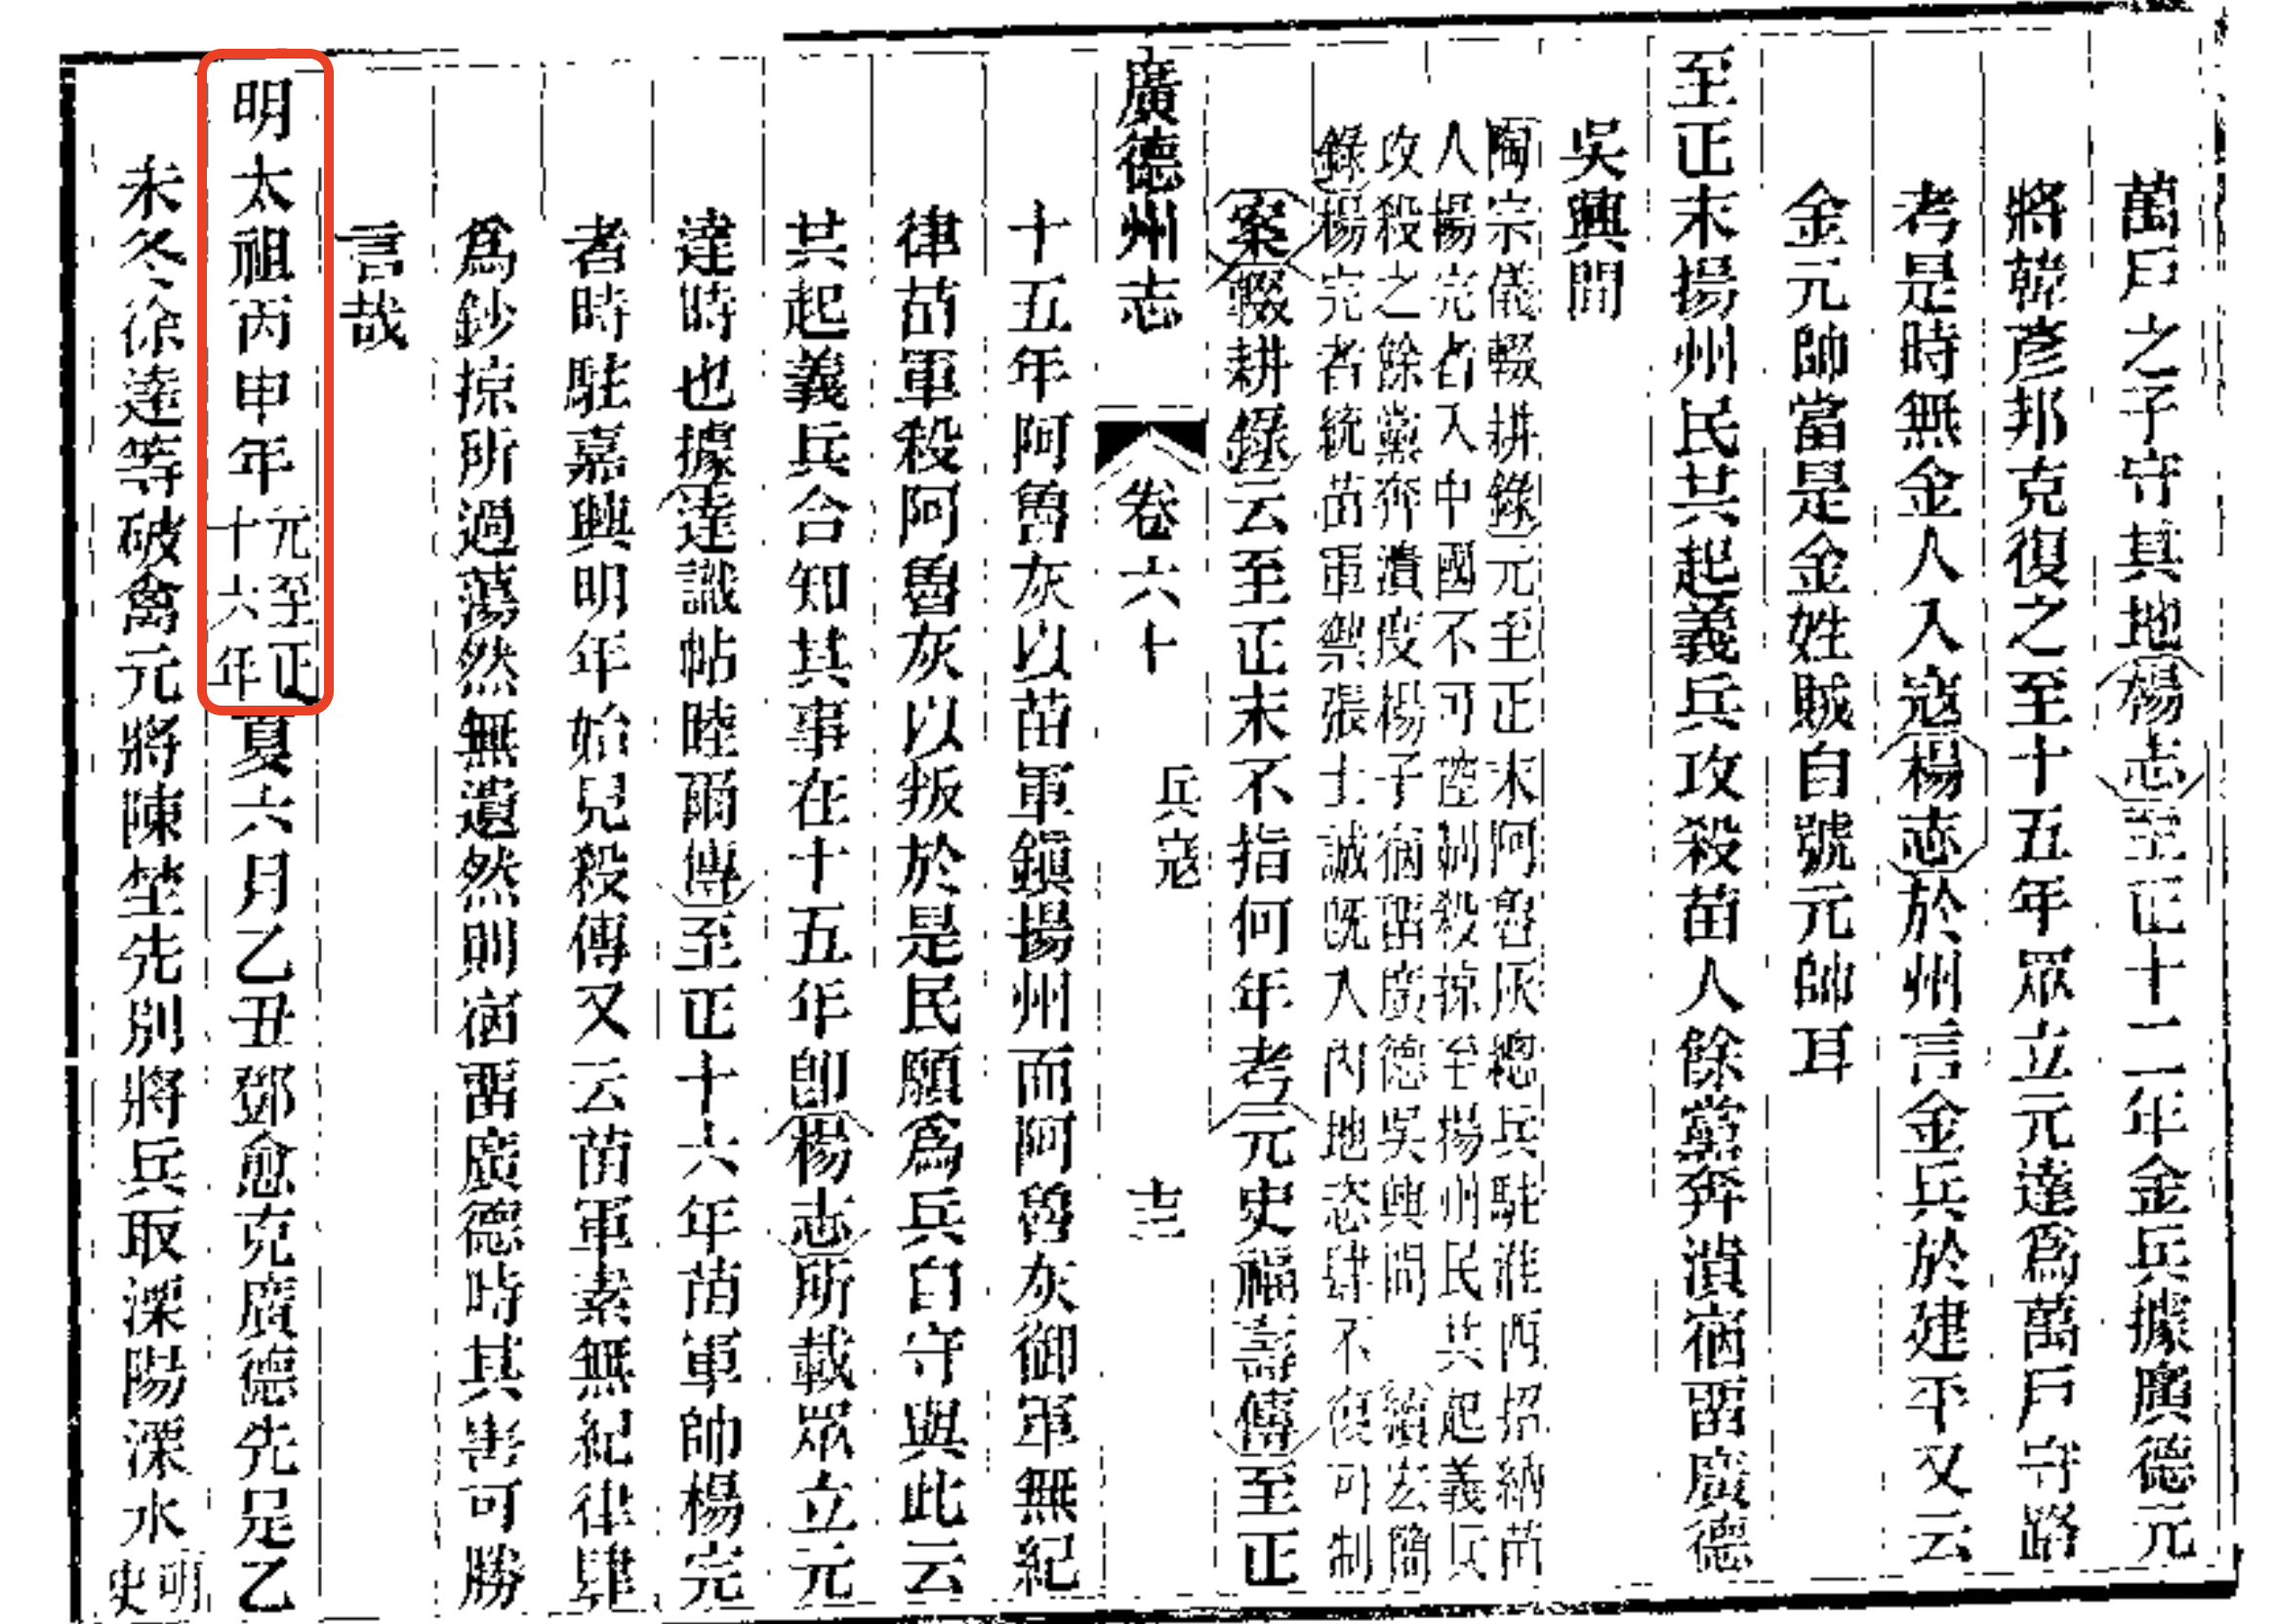 萬戶之子守其地楊志至正十二年金兵據廣德元
將韓彥邦克復之至十五年眾立元達爲萬戶守路
考是時無金人入寇楊志於州言金兵於建平又云
金元帥當是金姓賊自號元帥耳
至正末揚州民共起義兵攻殺苗人餘黨奔潰宿畱廣德
吳興間
陶宗儀輟耕錄元至正末阿魯灰總兵駐淮西招納苗
人楊完者入中國不可控制殺掠至揚州民共起義兵
攻殺之餘黨奔潰度楊子宿畱廣德吳興間 續宏簡
錄楊完者統苗軍禦張士誠既入內地恣肆不復可制
案輟耕錄云至正末不指何年考元史福壽傳至正
廣德州志 卷六十 兵寇 十三
十五年阿魯灰以苗軍鎮揚州而阿魯灰御軍無紀
律苗軍殺阿魯灰以叛於是民願爲兵自守與此云
共起義兵合知其事在十五年卽楊志所載眾立元
達時也據達識帖睦爾傳至正十六年苗軍帥楊完
者時駐嘉興明年始見殺傳又云苗軍素無紀律肆
爲鈔掠所過蕩然無遺然則宿畱廣德時其害可勝
言哉
明太祖丙申年元至正十六年夏六月乙丑鄧愈克廣德先是乙
未冬徐達等破禽元將陳埜先別將兵取溧陽溧水明史